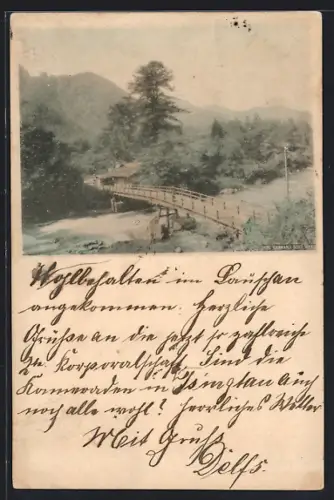 Wohlbehalten im Lauschan
angekommen. Herzliche
Grüße an die jetzt so zahlreiche
2te. Korporalschaft. Sind die
Kameraden in Tsingtau auch
noch alle wohl? herrliches Wetter
Mit Gruß
Delfs.